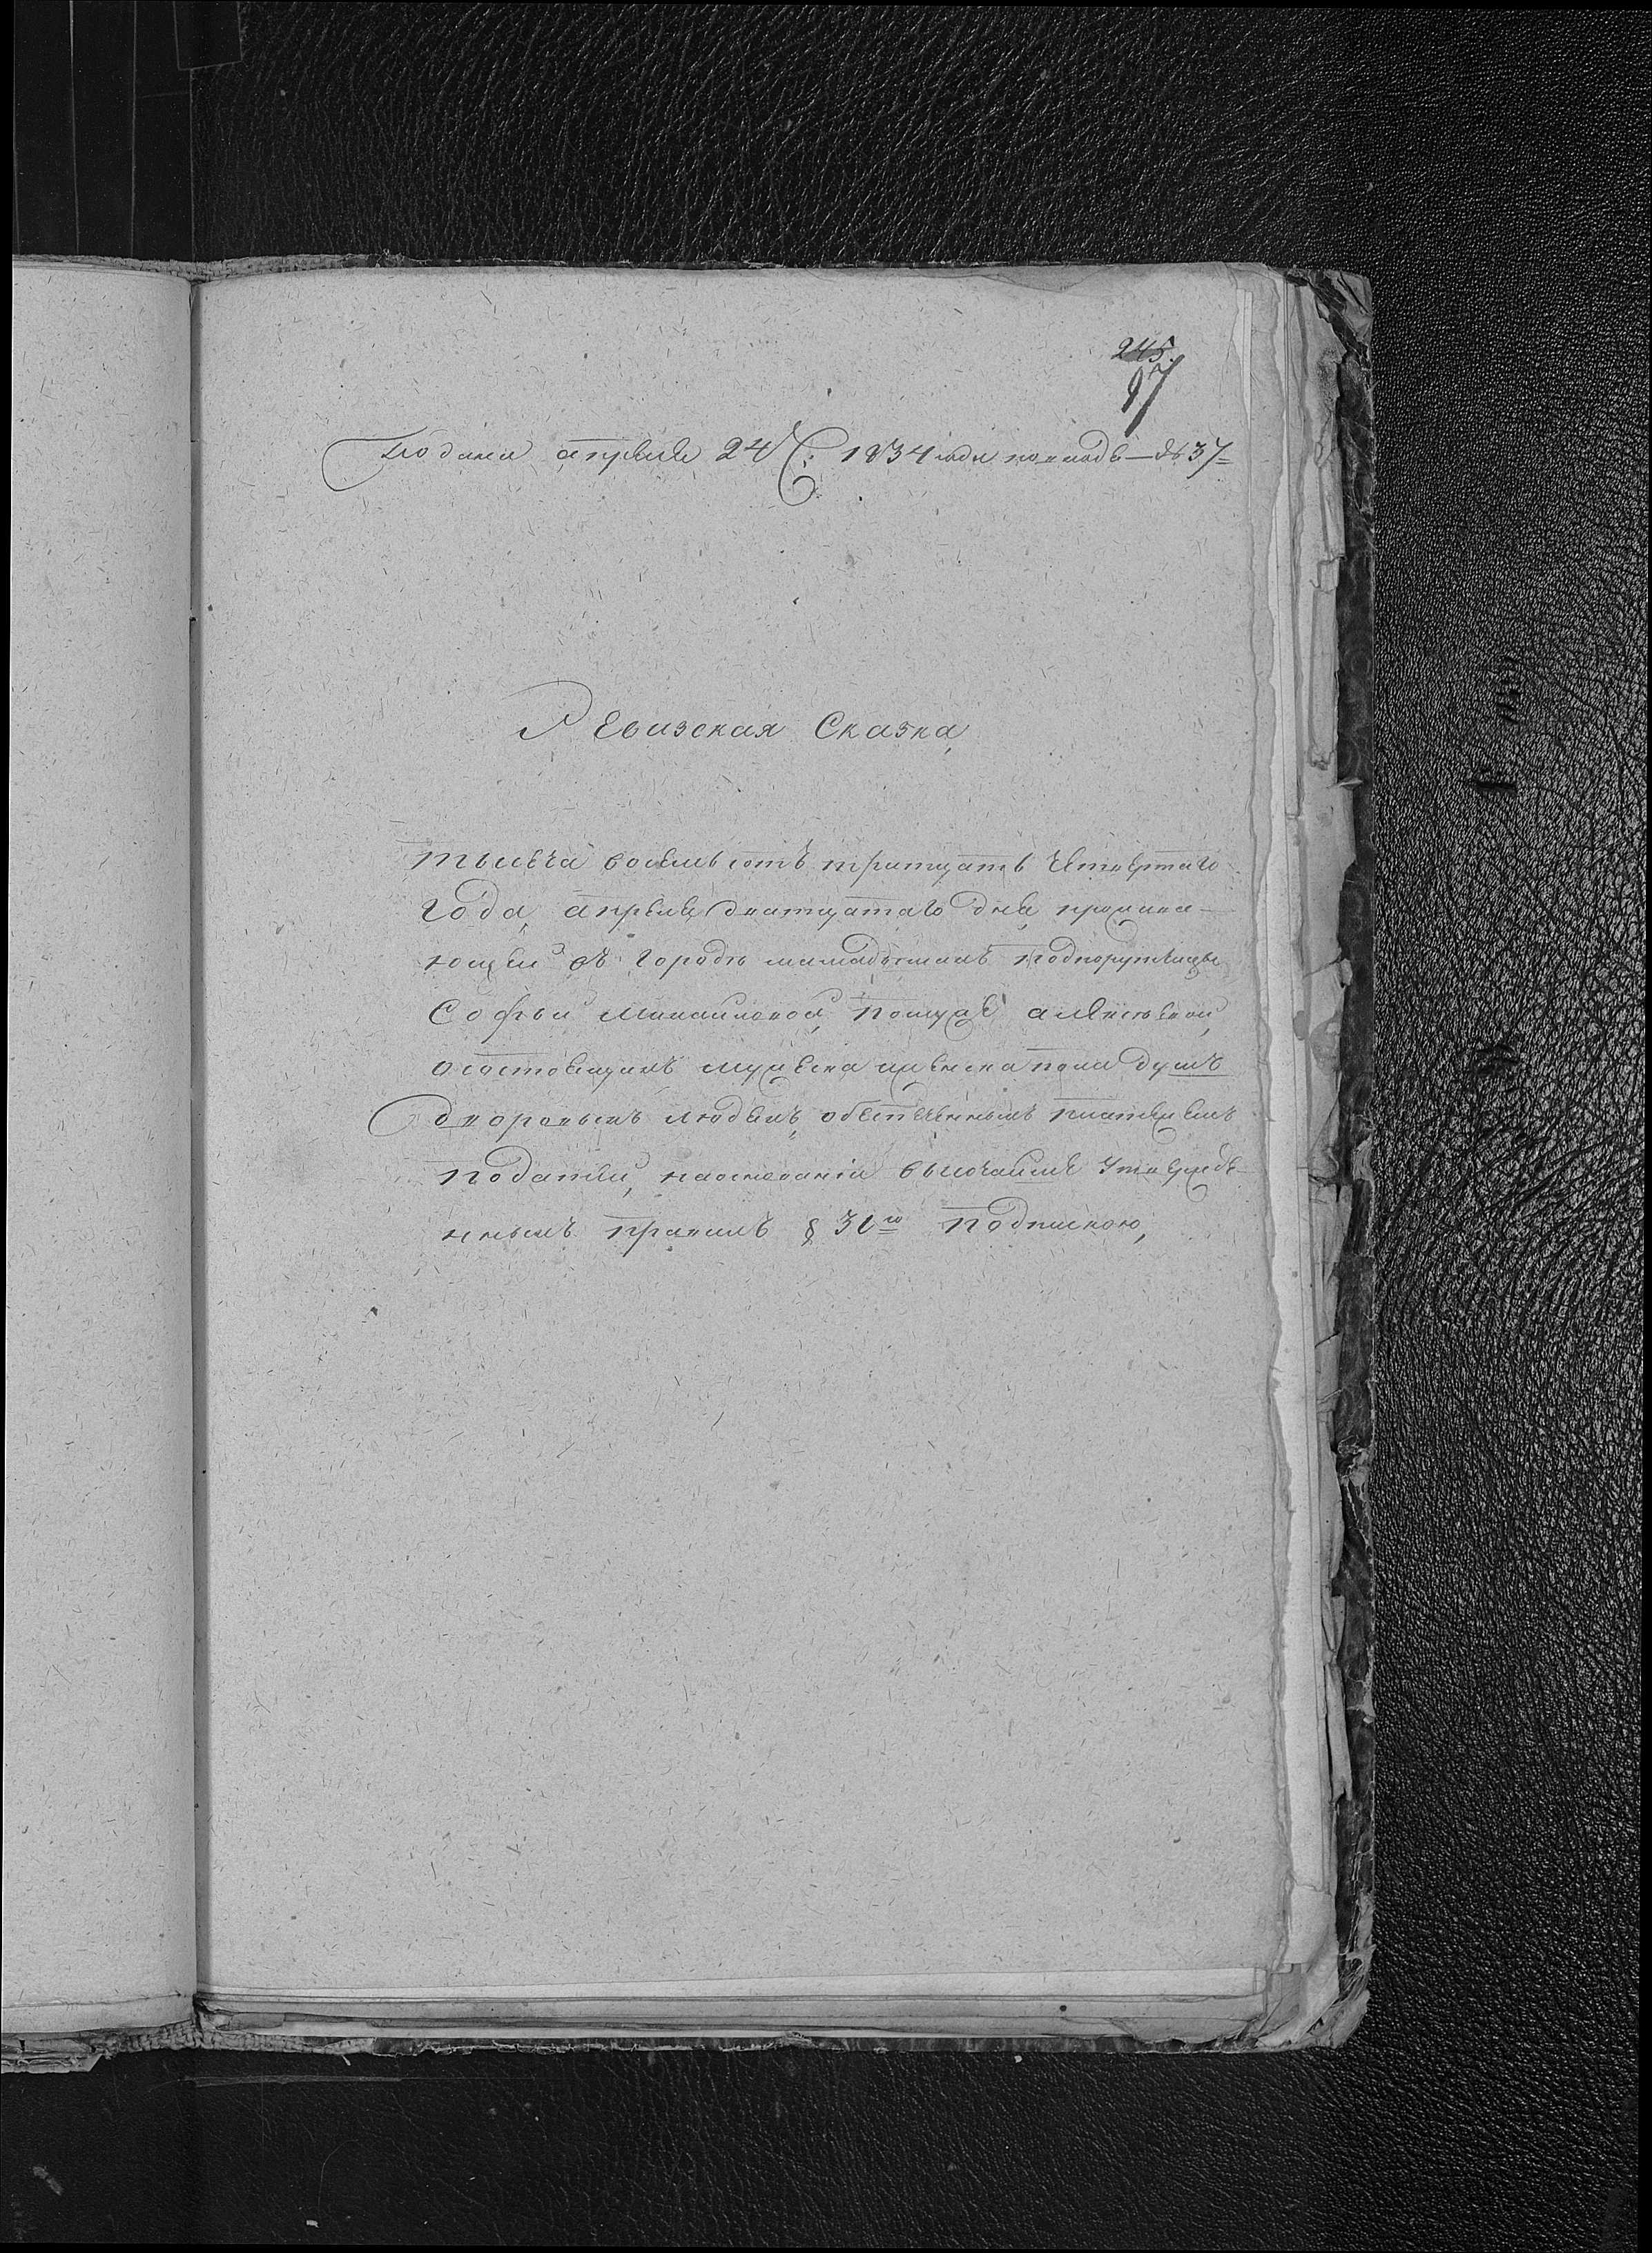 245.
97
Подана апреля 24 1834 года под № 37
Ревизская Сказка
тысеча восемь сотъ тритцать четвертаго
года, апреля дватцатаго дня, прожива-
ющей въ городе мамадышахъ подпорутчицы
Софьи Михайловой, по муже
о состоящихъ мужеска и женска пола душъ
дворовымъ людемъ, обеспеченнымъ платежемъ
податей, на основании высочайше утвержде-
ннымъ правилъ § подпискою,